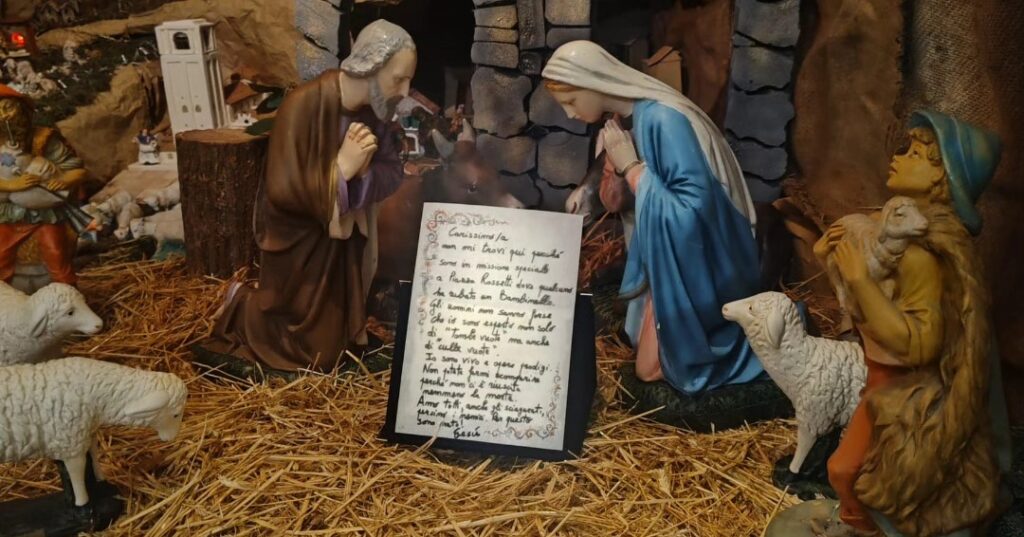 Carissimo/a
non mi trovi qui perché
sono in missione speciale
a Piazza Rossetti dove qualcuno
ha rubato un Bambinello.
Gli uomini non sanno forse
che io sono esperto non solo
di "Tombe vuote" ma anche
di "culle vuote".
Io sono vivo e opero prodigi.
Non potete farmi scomparire
perché non ci è riuscita
nemmeno la morte.
Amo tutti, anche gli sciagurati,
persino i . Per questo
sono nato!
Gesù